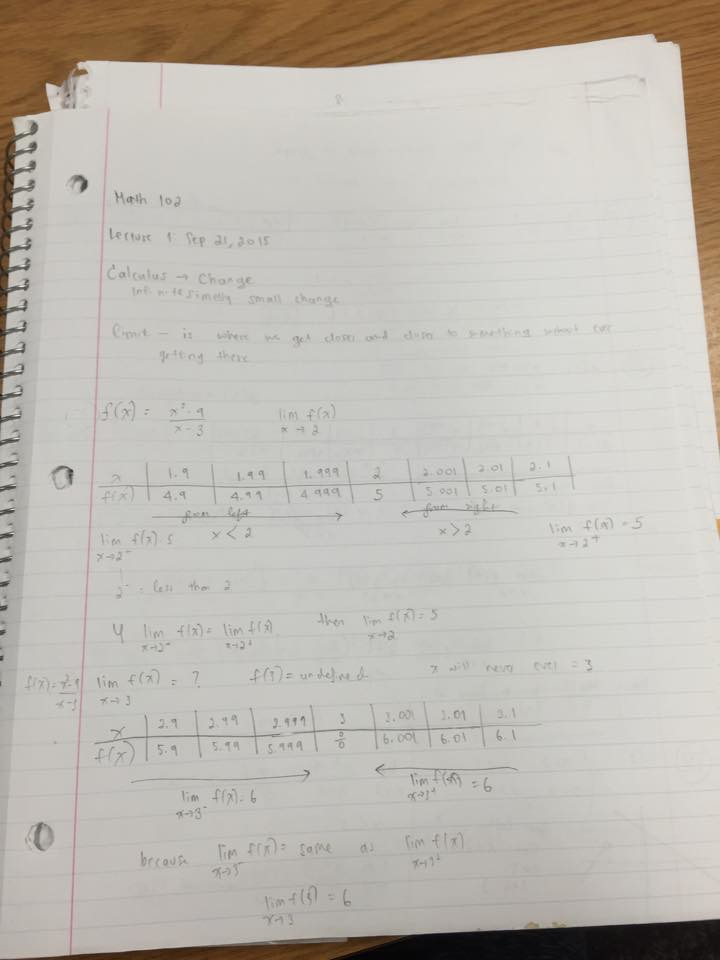 Math 102
Lecture 1: Sep 21, 2015
Calculus → Change
Infinitesimally small change
limit - is where we get closer and closer to something without ever
getting there
f(x) = x²-9 / x-3   lim x→2 f(x)
x | 1.9 | 1.99 | 1.999 | 2 | 2.001 | 2.01 | 2.1
f(x) | 4.9 | 4.99 | 4.999 | 5 | 5.001 | 5.01 | 5.1
from left   from right
lim x→2⁻ f(x) = 5   x < 2   x > 2   lim x→2⁺ f(x) = 5
2⁻ = less than 2
If lim x→2⁻ f(x) = lim x→2⁺ f(x)   then lim x→2 f(x) = 5
f(x) = x²-9 / x-3   lim x→3 f(x) = ?   f(3) = undefined   x will never ever = 3
x | 2.9 | 2.99 | 2.999 | 3 | 3.001 | 3.01 | 3.1
f(x) | 5.9 | 5.99 | 5.999 | 0/0 | 6.001 | 6.01 | 6.1
lim x→3⁻ f(x) = 6   lim x→3⁺ f(x) = 6
because lim x→3⁻ f(x) = same as lim x→3⁺ f(x)
lim x→3 f(3) = 6